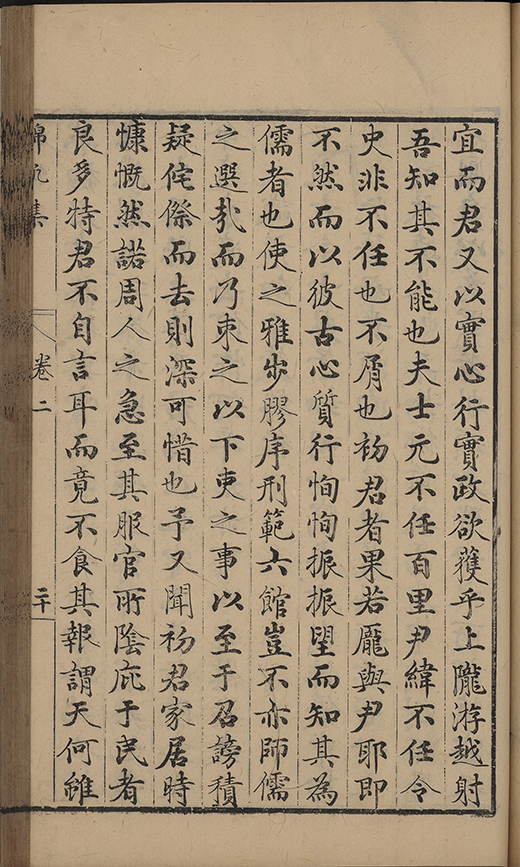 宜而君又以實心行實政欲獲乎上隴游越射
吾知其不能也夫士元不任百里尹緯不任令
史非不任也不屑也初君者果若龐與尹耶即
不然而以彼古心質行恂恂振振望而知其為
儒者也使之雅步膠序刑範六館豈不亦師儒
之選㢤而乃束之以下吏之事以至于召謗積
疑侘傺而去則深可惜也予又聞初君家居時
慷慨然諾周人之急至其服官所陰庇于民者
良多特君不自言耳而竟不食其報謂天何雖
錦帆集
卷二
二十